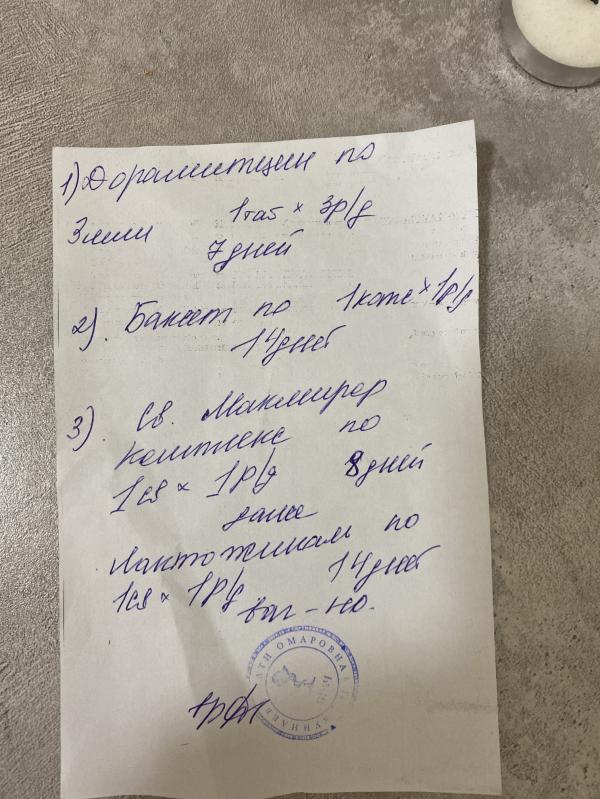 1) Дорамитцин по
3 млн 1таб × 3р/д
7 дней
2). Баксет по 1капс × 1р/д
14 дней
3) Св. Макмирор
комплекс по
1св × 1р/д 8 дней
далее
Лактожиналь по
1св × 1р/д 14 дней
ваг-но.
ОМАРОВНА